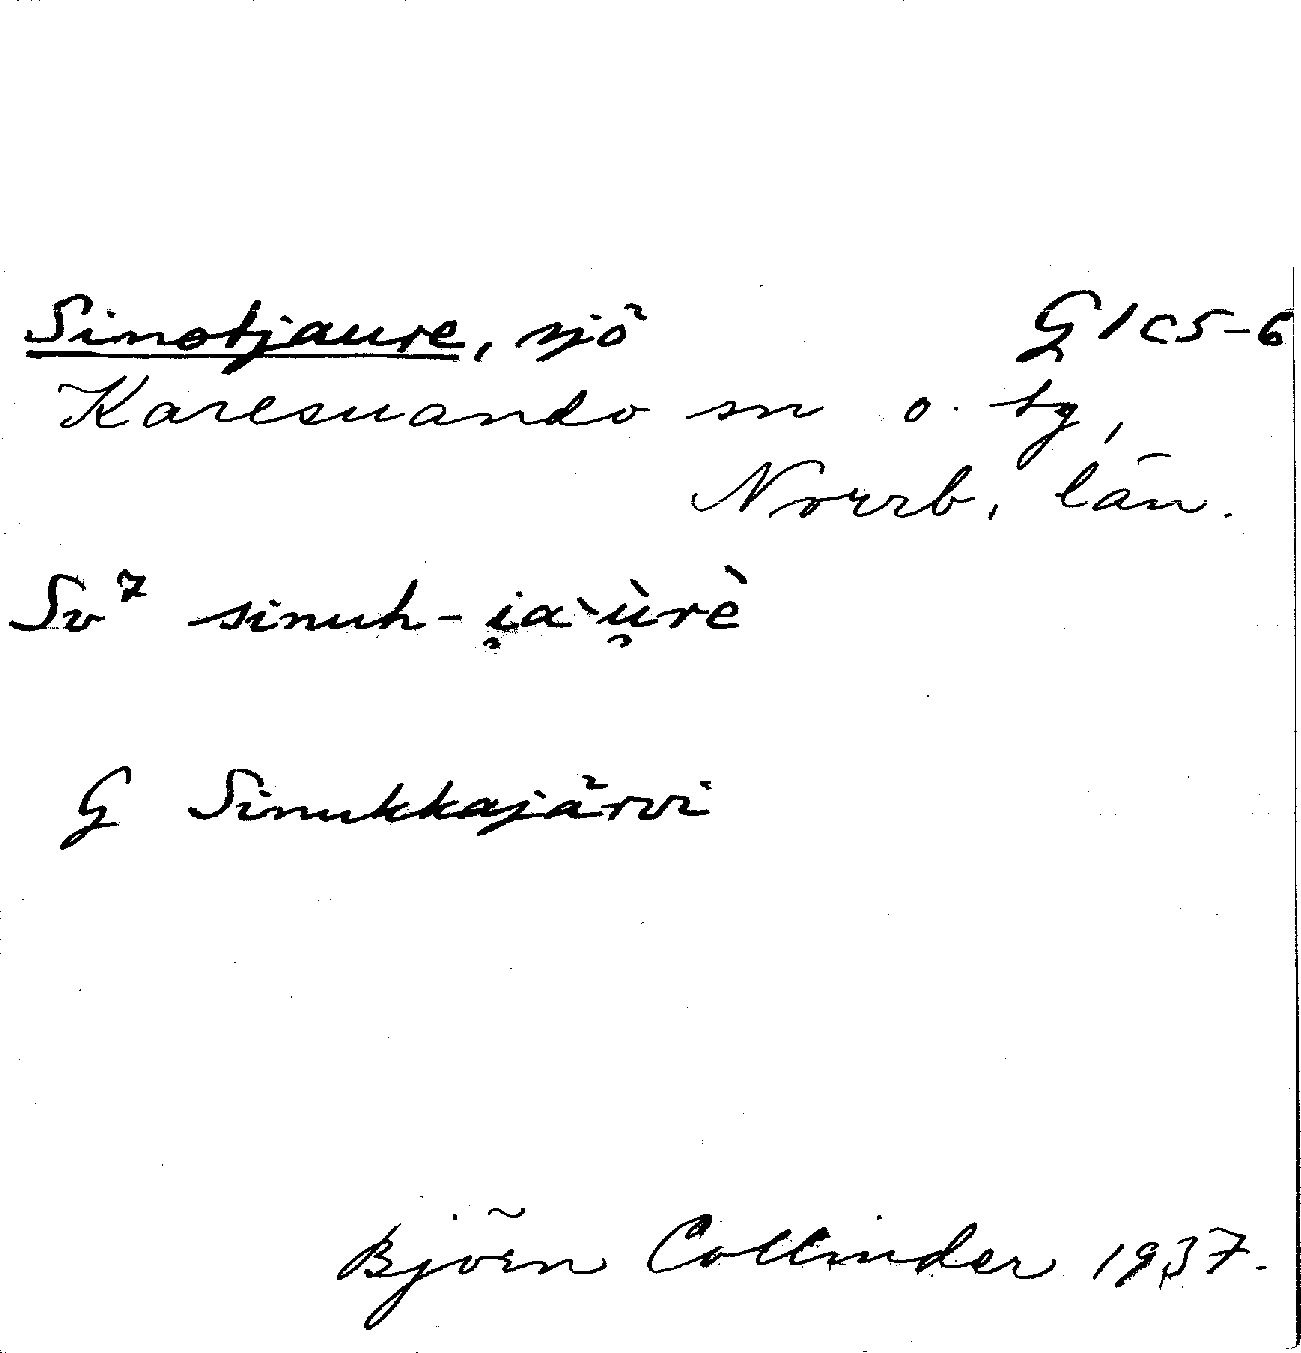 Sinotjaure, sjö G1c5-6
Karesuando sn o. tg,
Norrb. län.
Sv⁷ sinuh-i̯a`u̯̇rè
G Sinukkajärvi
Björn Collinder 1937.